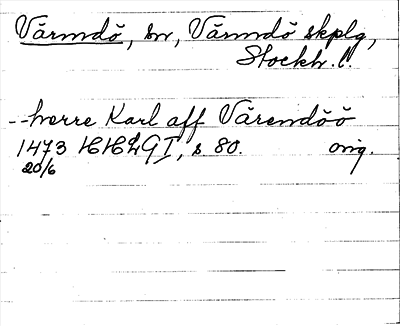 Värmdö, sn, Värmdö skplg,
Stockh. l.
--herre Karl aff Värendöö
1473 HHLG I, s 80. orig.
20/6